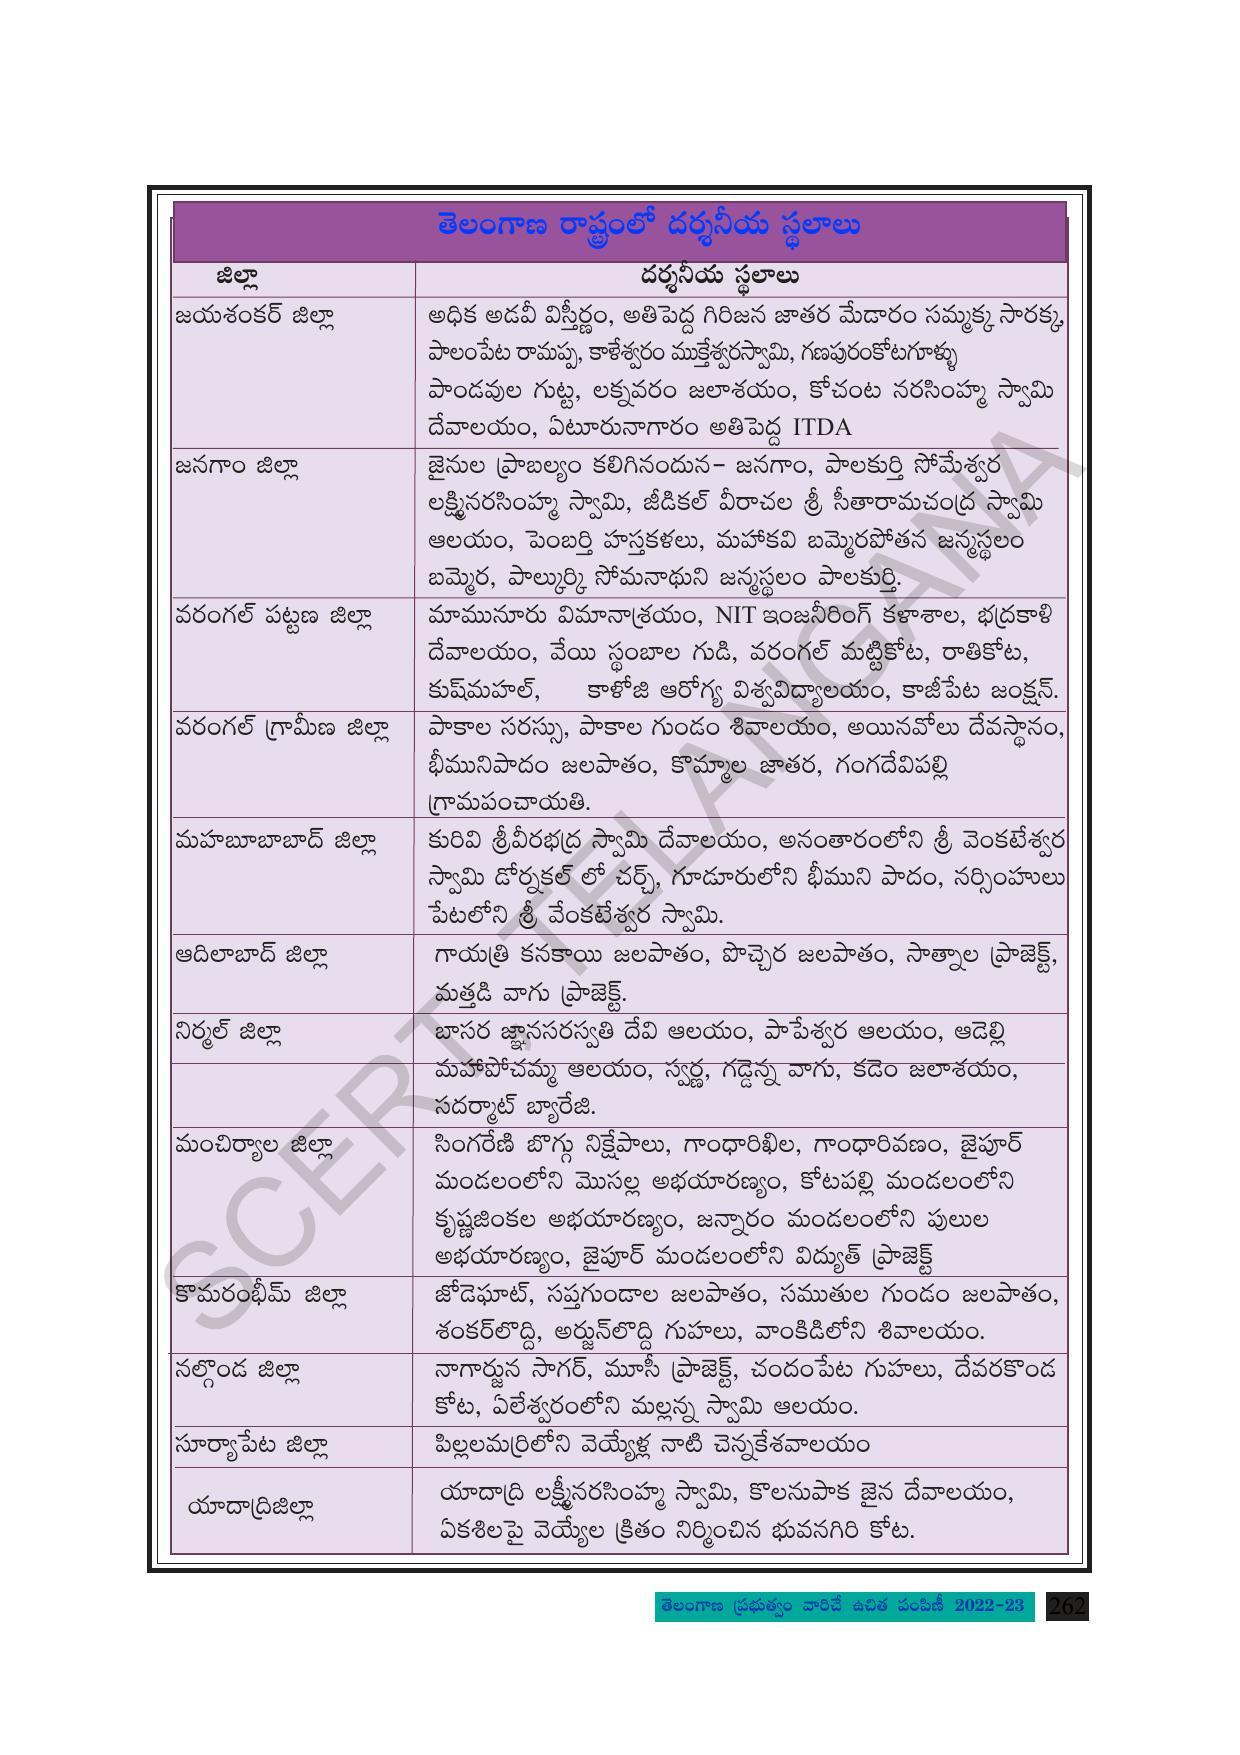 తెలంగాణ రాష్ట్రంలో దర్శనీయ స్థలాలు
జిల్లా దర్శనీయ స్థలాలు
జయశంకర్ జిల్లా అధిక అడవీ విస్తీర్ణం, అతిపెద్ద గిరిజన జాతర మేడారం సమ్మక్క సారక్క,
పాలంపేట రామప్ప, కాళేశ్వరం ముక్తేశ్వరస్వామి, గణపురంకోటగూళ్ళు
పాండవుల గుట్ట, లక్నవరం జలాశయం, కోచంట నరసింహ్మ స్వామి
దేవాలయం, ఏటూరునాగారం అతిపెద్ద ITDA
జనగాం జిల్లా జైనుల ప్రాబల్యం కలిగినందున- జనగాం, పాలకుర్తి సోమేశ్వర
లక్ష్మినరసింహ్మ స్వామి, జీడికల్ వీరాచల శ్రీ సీతారామచంద్ర స్వామి
ఆలయం, పెంబర్తి హస్తకళలు, మహాకవి బమ్మెరపోతన జన్మస్థలం
బమ్మెర, పాల్కుర్కి సోమనాథుని జన్మస్థలం పాలకుర్తి.
వరంగల్ పట్టణ జిల్లా మామునూరు విమానాశ్రయం, NIT ఇంజనీరింగ్ కళాశాల, భద్రకాళి
దేవాలయం, వేయి స్థంబాల గుడి, వరంగల్ మట్టికోట, రాతికోట,
కుష్‌మహల్, కాళోజి ఆరోగ్య విశ్వవిద్యాలయం, కాజీపేట జంక్షన్.
వరంగల్ గ్రామీణ జిల్లా పాకాల సరస్సు, పాకాల గుండం శివాలయం, అయినవోలు దేవస్థానం,
భీమునిపాదం జలపాతం, కొమ్మాల జాతర, గంగదేవిపల్లి
గ్రామపంచాయతి.
మహబూబాబాద్ జిల్లా కురివి శ్రీవీరభద్ర స్వామి దేవాలయం, అనంతారంలోని శ్రీ వెంకటేశ్వర
స్వామి డోర్నకల్ లో చర్చ్, గూడూరులోని భీముని పాదం, నర్సింహులు
పేటలోని శ్రీ వేంకటేశ్వర స్వామి.
ఆదిలాబాద్ జిల్లా గాయత్రి కనకాయి జలపాతం, పొచ్చెర జలపాతం, సాత్నాల ప్రాజెక్ట్,
మత్తడి వాగు ప్రాజెక్ట్.
నిర్మల్ జిల్లా బాసర జ్ఞానసరస్వతి దేవి ఆలయం, పాపేశ్వర ఆలయం, ఆడెల్లి
మహాపోచమ్మ ఆలయం, స్వర్ణ, గడ్డెన్న వాగు, కడెం జలాశయం,
సదర్మాట్ బ్యారేజి.
మంచిర్యాల జిల్లా సింగరేణి బొగ్గు నిక్షేపాలు, గాంధారిఖిల, గాంధారివణం, జైపూర్
మండలంలోని మొసల్ల అభయారణ్యం, కోటపల్లి మండలంలోని
కృష్ణజింకల అభయారణ్యం, జన్నారం మండలంలోని పులుల
అభయారణ్యం, జైపూర్ మండలంలోని విద్యుత్ ప్రాజెక్ట్
కొమరంభీమ్ జిల్లా జోడెఘాట్, సప్తగుండాల జలపాతం, సముతుల గుండం జలపాతం,
శంకర్‌లొద్ది, అర్జున్‌లొద్ది గుహలు, వాంకిడిలోని శివాలయం.
నల్గొండ జిల్లా నాగార్జున సాగర్, మూసీ ప్రాజెక్ట్, చందంపేట గుహలు, దేవరకొండ
కోట, ఏలేశ్వరంలోని మల్లన్న స్వామి ఆలయం.
సూర్యాపేట జిల్లా పిల్లలమర్రిలోని వెయ్యేళ్ల నాటి చెన్నకేశవాలయం
యాదాద్రిజిల్లా యాదాద్రి లక్ష్మీనరసింహ్మ స్వామి, కొలనుపాక జైన దేవాలయం,
ఏకశిలపై వెయ్యేల క్రితం నిర్మించిన భువనగిరి కోట.
SCERT, TELANGANA
తెలంగాణ ప్రభుత్వం వారిచే ఉచిత పంపిణీ 2022-23 262